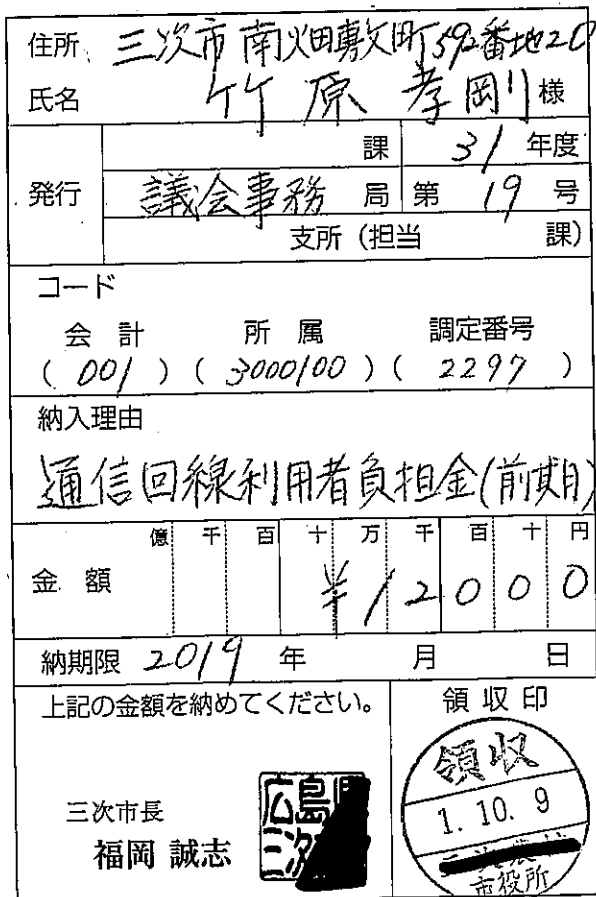 住所 三次市南畑敷町592番地20
氏名 竹原孝剛様
課 31年度
発行 議会事務局 第19号
支所(担当 課)
コード
会計 所属 調定番号
(001)(3000100)(2297)
納入理由
通信回線利用者負担金(前期)
億 千 百 十 万 千 百 十 円
金額 ¥12000
納期限 2019年 月 日
上記の金額を納めてください。
領収印
領収
1.10.9
市役所
三次市長
福岡 誠志
広島
三次